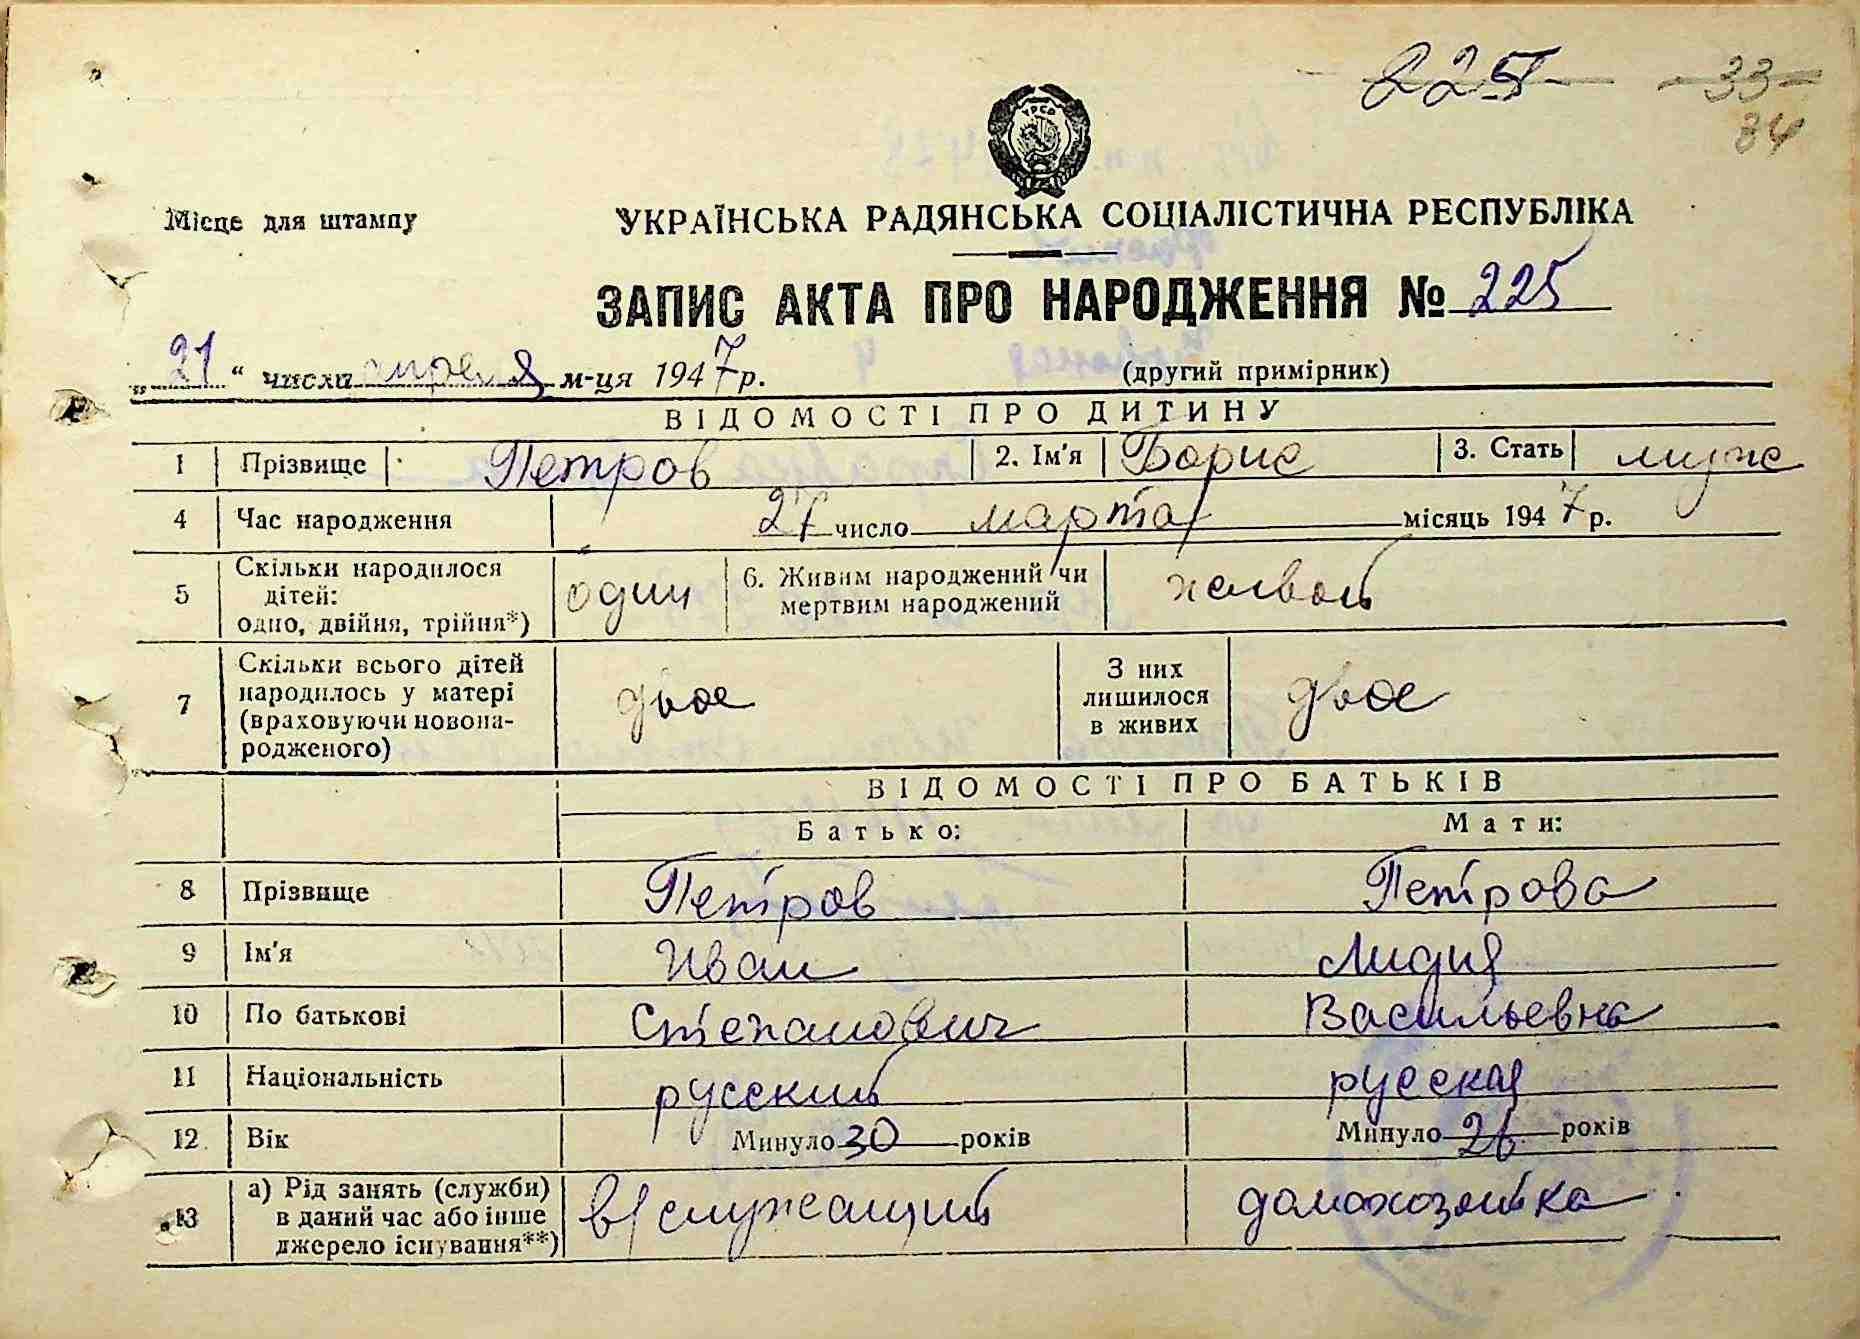 225 33
34
УРСР
Місце для штампу
УКРАЇНСЬКА РАДЯНСЬКА СОЦІАЛІСТИЧНА РЕСПУБЛІКА
ЗАПИС АКТА ПРО НАРОДЖЕННЯ № 225
„21“ числа апреля м-ця 1947 р. (другий примірник)
ВІДОМОСТІ ПРО ДИТИНУ
1 Прізвище Петров 2. Ім'я Борис 3. Стать муж
4 Час народження 27 число марта місяць 1947 р.
5 Скільки народилося дітей: одно, двійня, трійня*) один 6. Живим народжений чи мертвим народжений живой
7 Скільки всього дітей народилось у матері (враховуючи новонародженого) двое З них лишилося в живих двое
ВІДОМОСТІ ПРО БАТЬКІВ
Батько: Мати:
8 Прізвище Петров Петрова
9 Ім'я Иван Лидия
10 По батькові Степанович Васильевна
11 Національність русский русская
12 Вік Минуло 30 років Минуло 26 років
13 а) Рід занять (служби) в даний час або інше джерело існування**) в/служащий домохозяйка